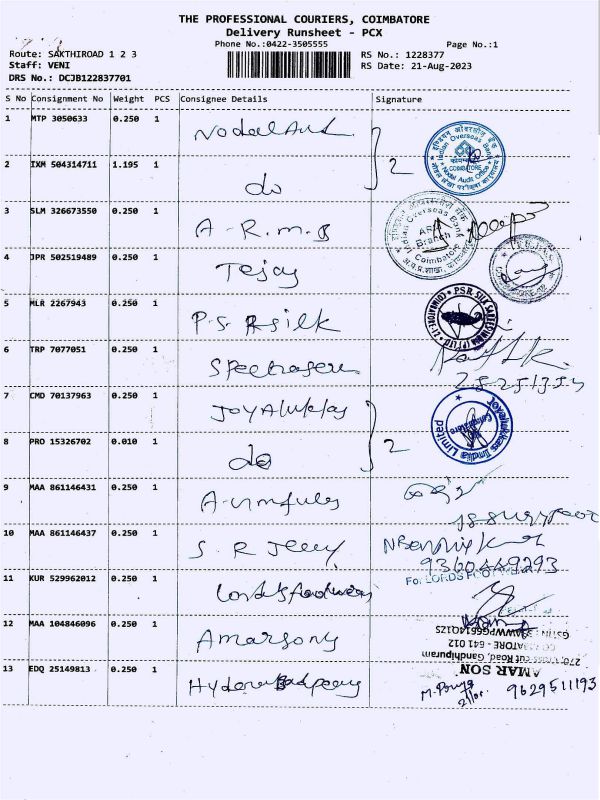 THE PROFESSIONAL COURIERS, COIMBATORE
Delivery Runsheet - PCX
Phone No.:0422-3505555
Page No.:1
Route: SAKTHIROAD 1 2 3
RS No.: 1228377
Staff: VENI
RS Date: 21-Aug-2023
DRS No.: DCJB122837701
S No Consignment No Weight PCS Consignee Details Signature
1 MTP 3050633 0.250 1 Nodal Aud
2 IXM 504314711 1.195 1 do 2
Indian Overseas Bank
COIMBATORE
Nodal Audit Office
3 SLM 326673550 0.250 1 A-R.m.B
Indian Overseas Bank
Branch
Coimbatore
4 JPR 502519489 0.250 1 Tejay
5 MLR 2267943 0.250 1 P.S.R silk
P.S.R. SILK SAREES INDIA (P) LTD
6 TRP 7077051 0.250 1
7 CMD 70137963 0.250 1 Joy Alukkas
8 PRO 15326702 0.010 1 do 2
Joyalukkas India Limited
Coimbatore
9 MAA 861146431 0.250 1
10 MAA 861146437 0.250 1 S. R Jerry
9360449293
11 KUR 529962012 0.250 1 Lords footwear
For LORDS FOOTWEAR
12 MAA 104846096 0.250 1 Amarsons
13 EDQ 25149813 0.250 1
AMAR SON
270, Cross cut Road, Gandhipuram
COIMBATORE - 641 012
9629511193